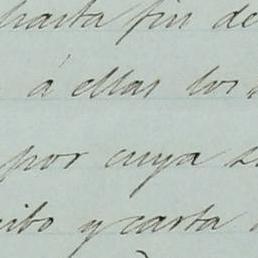 hasta fin de
á ellas los
por cuya
cibo y carta